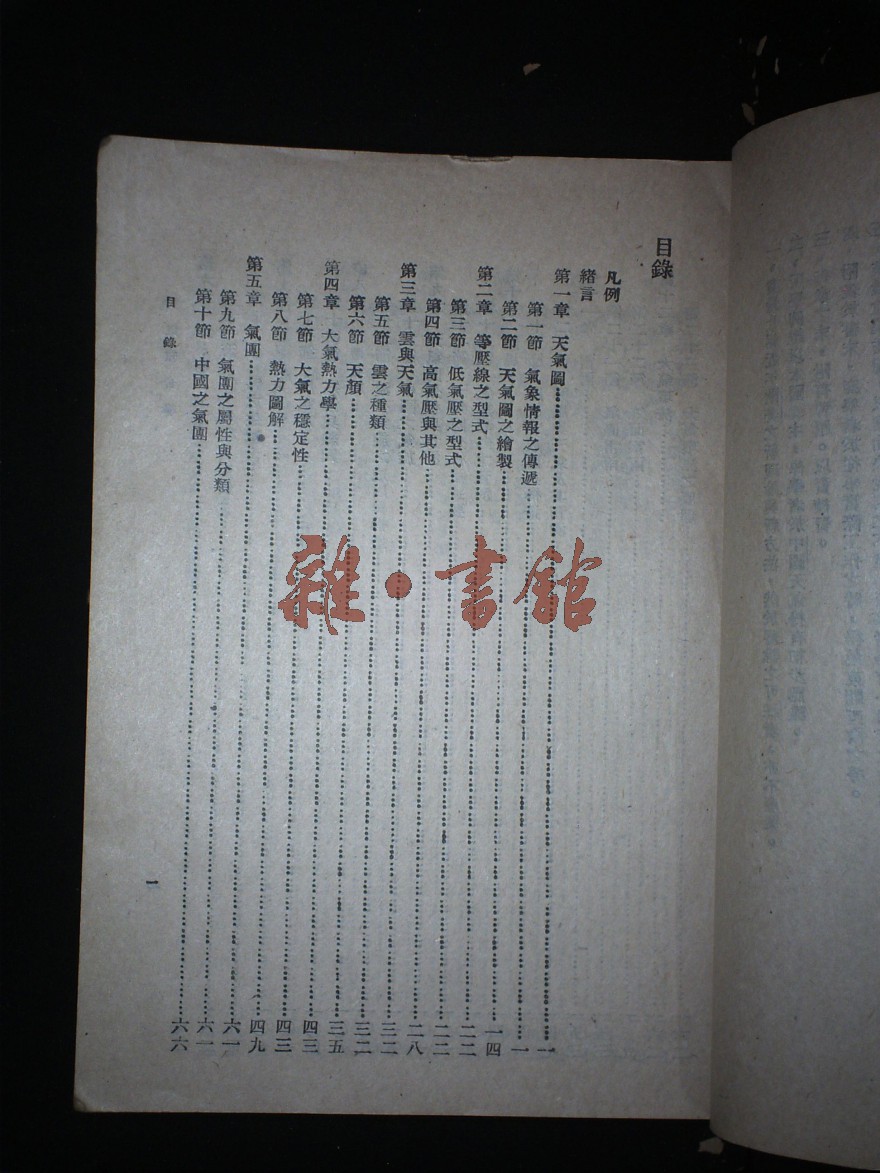 目錄
凡例
緒言
第一章 天氣圖……一
第一節 氣象情報之傳遞……一
第二節 天氣圖之繪製……一四
第二章 等壓線之型式……二二
第三節 低氣壓之型式……二二
第四節 高氣壓與其他……二八
第三章 雲與天氣……三二
第五節 雲之種類……三二
第六節 天顏……三五
第四章 大氣熱力學……四三
第七節 大氣之穩定性……四三
第八節 熱力圖解……四九
第五章 氣團……六一
第九節 氣團之屬性與分類……六一
第十節 中國之氣團……六六
目錄
一
雜·書館